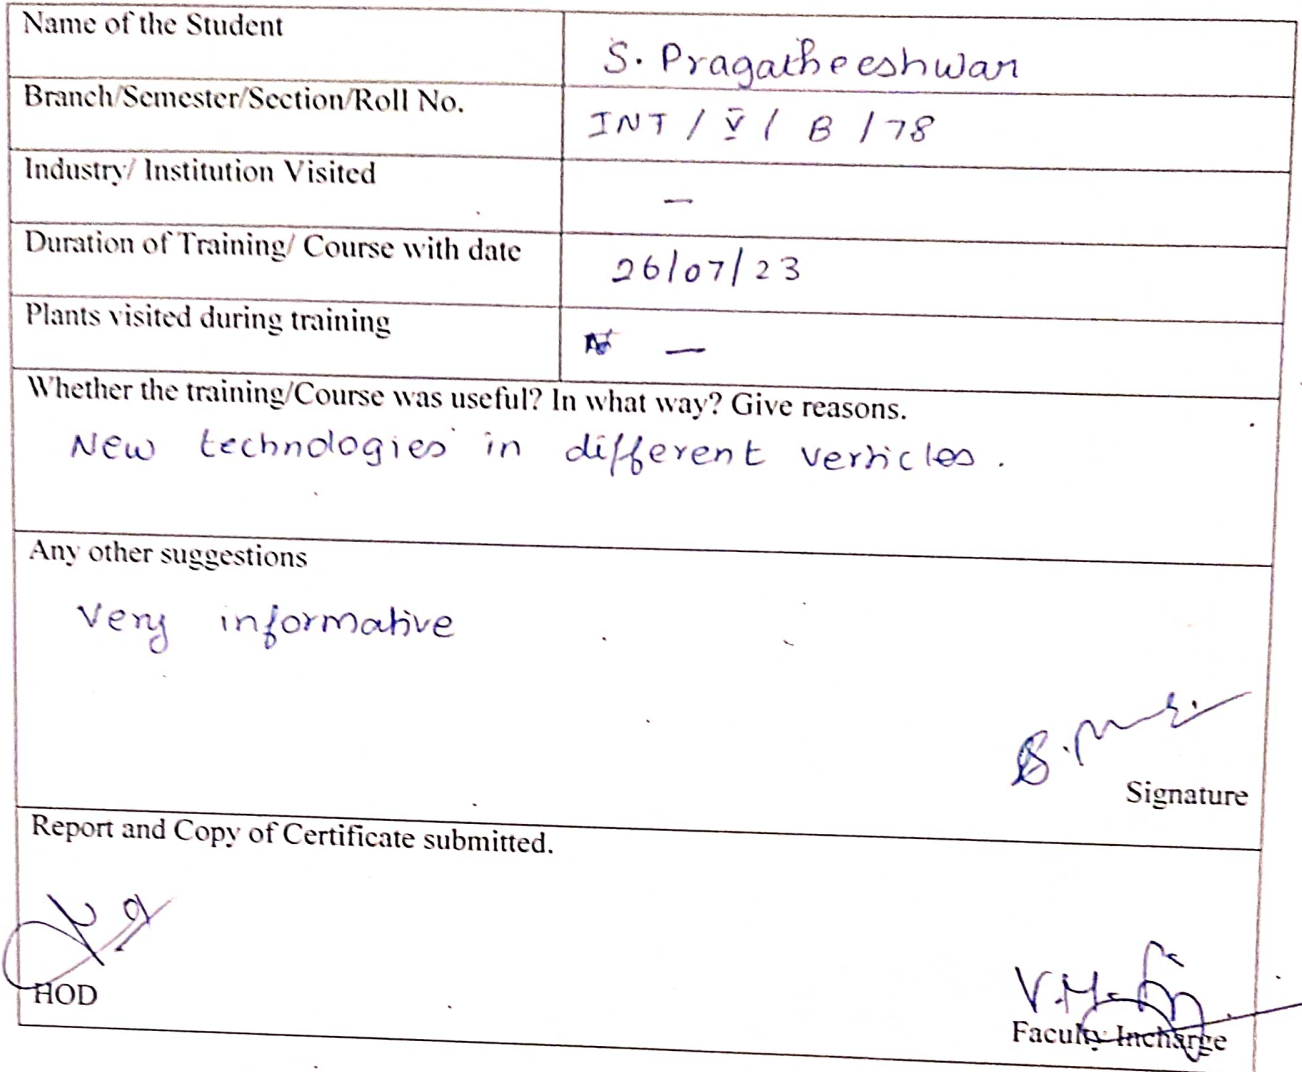 Name of the Student
S. Pragatheeshwar
Branch/Semester/Section/Roll No.
INT / V / B / 78
Industry/ Institution Visited
—
Duration of Training/ Course with date
26/07/23
Plants visited during training
—
Whether the training/Course was useful? In what way? Give reasons.
New technologies in different verticles.
Any other suggestions
Very informative
Signature
Report and Copy of Certificate submitted.
HOD
Faculty Incharge